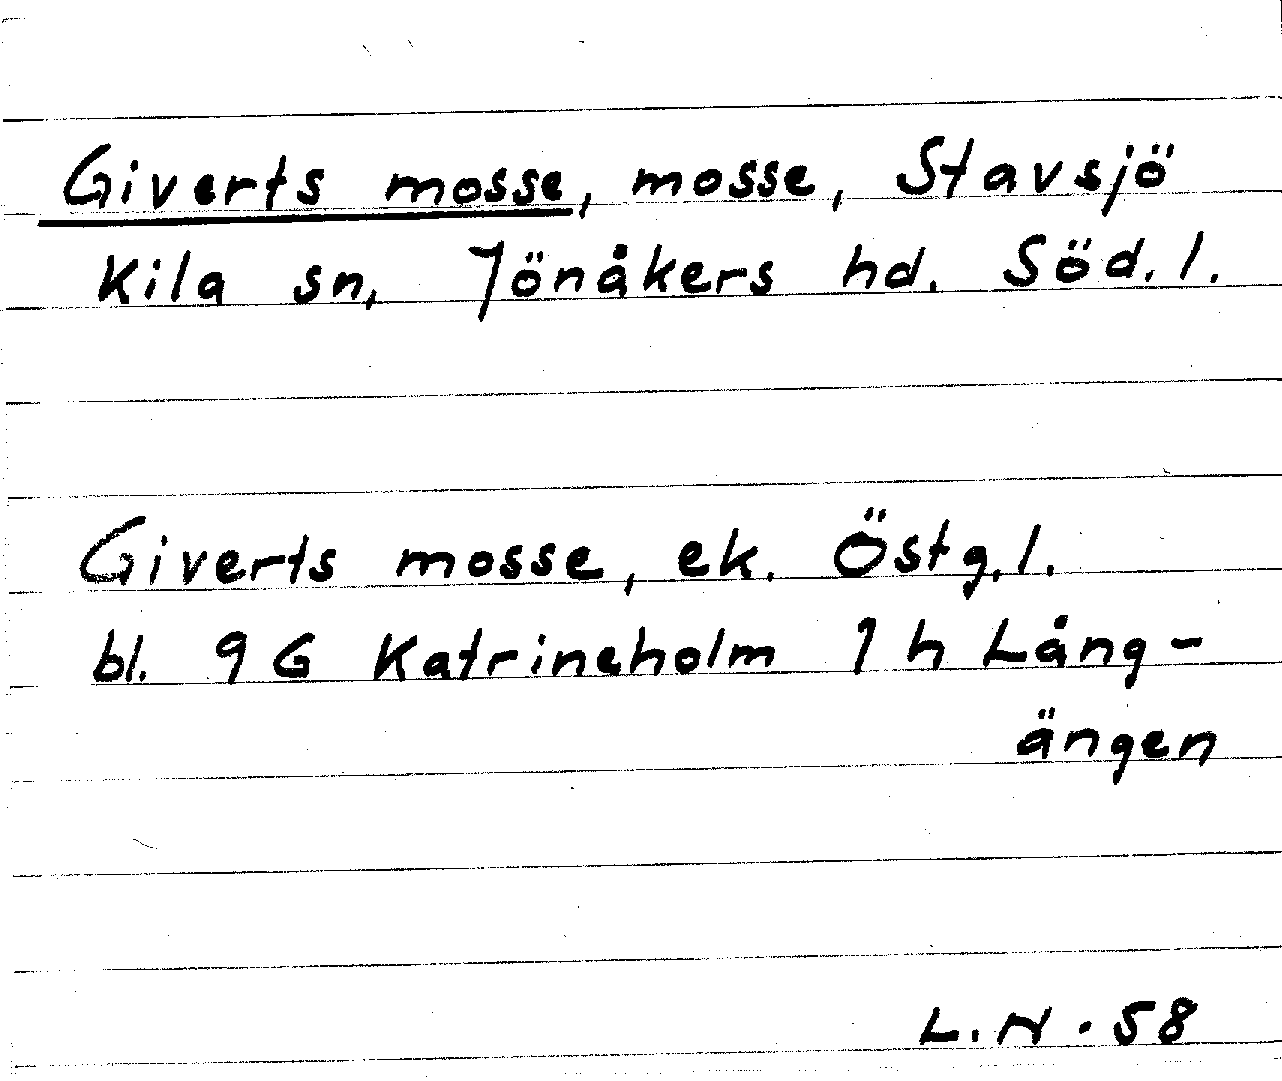 Giverts mosse, mosse, Stavsjö
Kila sn, Jönåkers hd. Söd.l.
Giverts mosse, ek. Östg.l.
bl. 9G Katrineholm 1h Lång-
ängen
L.N.58